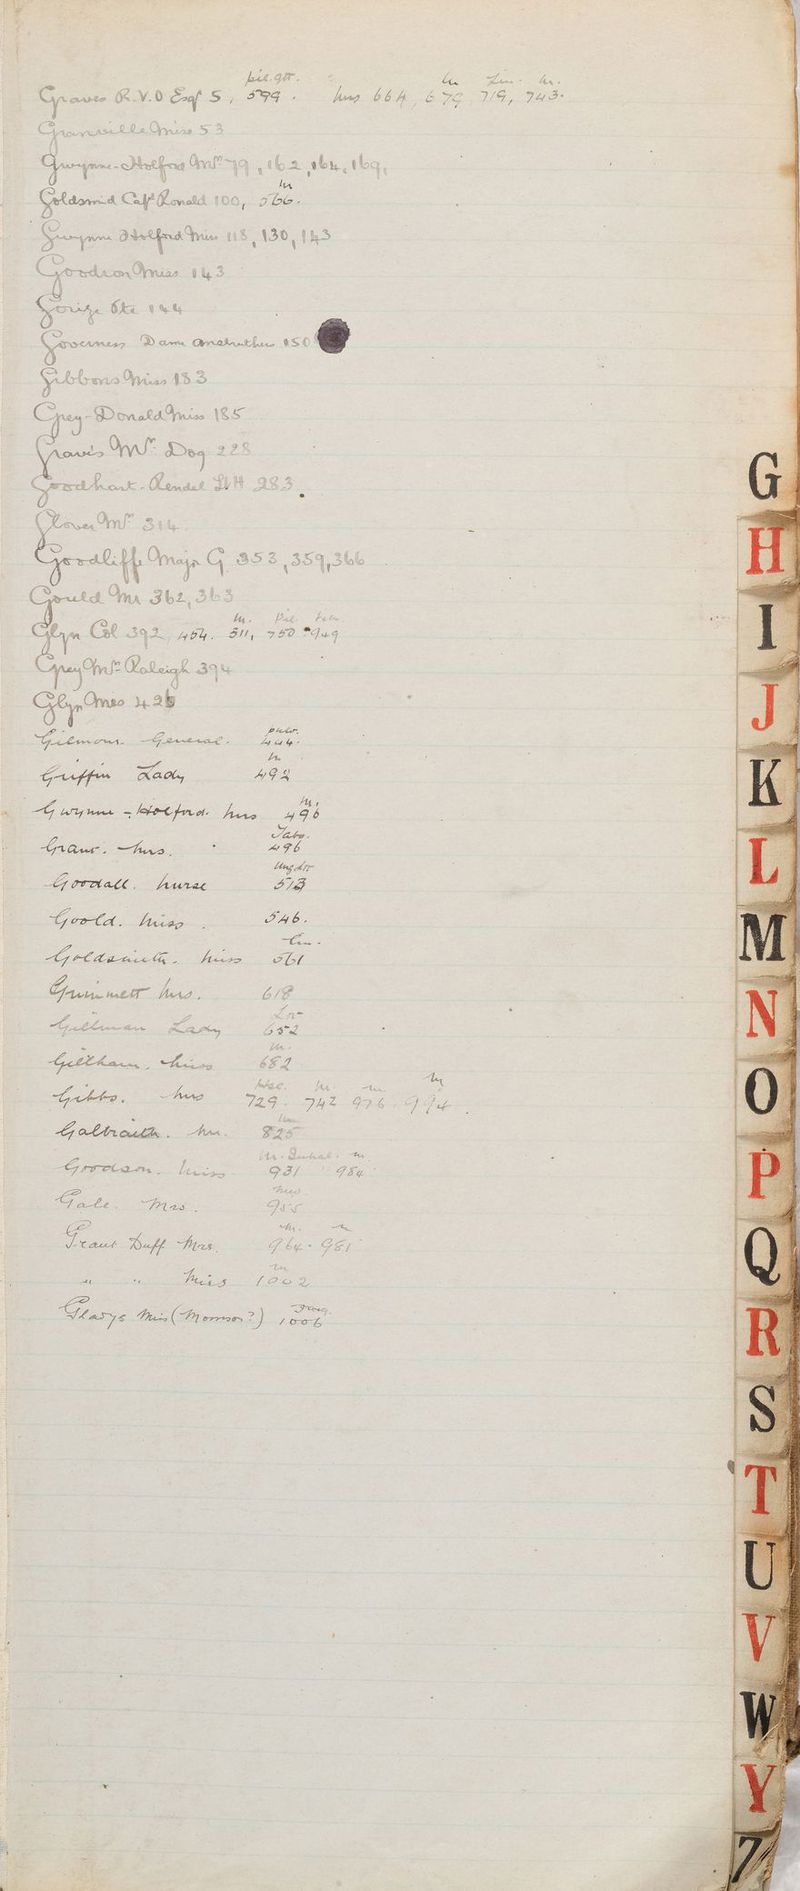 Graves R.V.O Esqr 5, 599. Mrs 664, 679, 719, 743.
Granville Miss 53
Gwynne-Holford Mrs 79, 162, 164, 169,
m
Goldsmid Capt Ronald 100, 566.
Gwynne Holford Miss 118, 130, 143
Goodson Miss 143
Pte 144
Governess Dame Anstruther 150
Gibbons Miss 183
Grey-Donald Miss 185
Graves Mr Dog 228
Goodhart-Rendel Lt H 283
Glover Mr 314
Goodliffe Major G 353, 359, 366
Gould Mr 362, 363
m. Pil.
Glyn Col 392, 454. 511, 750 949
Grey Mrs Raleigh 394
Glyn Mrs 426
Gilmour. General. 444.
m
Griffin Lady 492
m.
Gwynne-Holford. Mrs 496
Grant. Mrs. 496
Goodall. Nurse 513
Goold. Miss. 546.
Goldsmith. Miss 561
Grimmett Mrs. 618
Gillman Lady 652
m.
Giltham. Miss 682
m. m m
Gibbs. Mrs 729. 742 976. 994.
Galbraith. Mr. 825
m. m
Goodson. Miss 931 984
Gale. Mrs. 955
m. m
Grant Duff Mrs. 964. 981
m
" " Miss 1002
Gladys Miss (Morrison?) 1006
G
H
I
J
K
L
M
N
O
P
Q
R
S
T
U
V
W
Y
Z